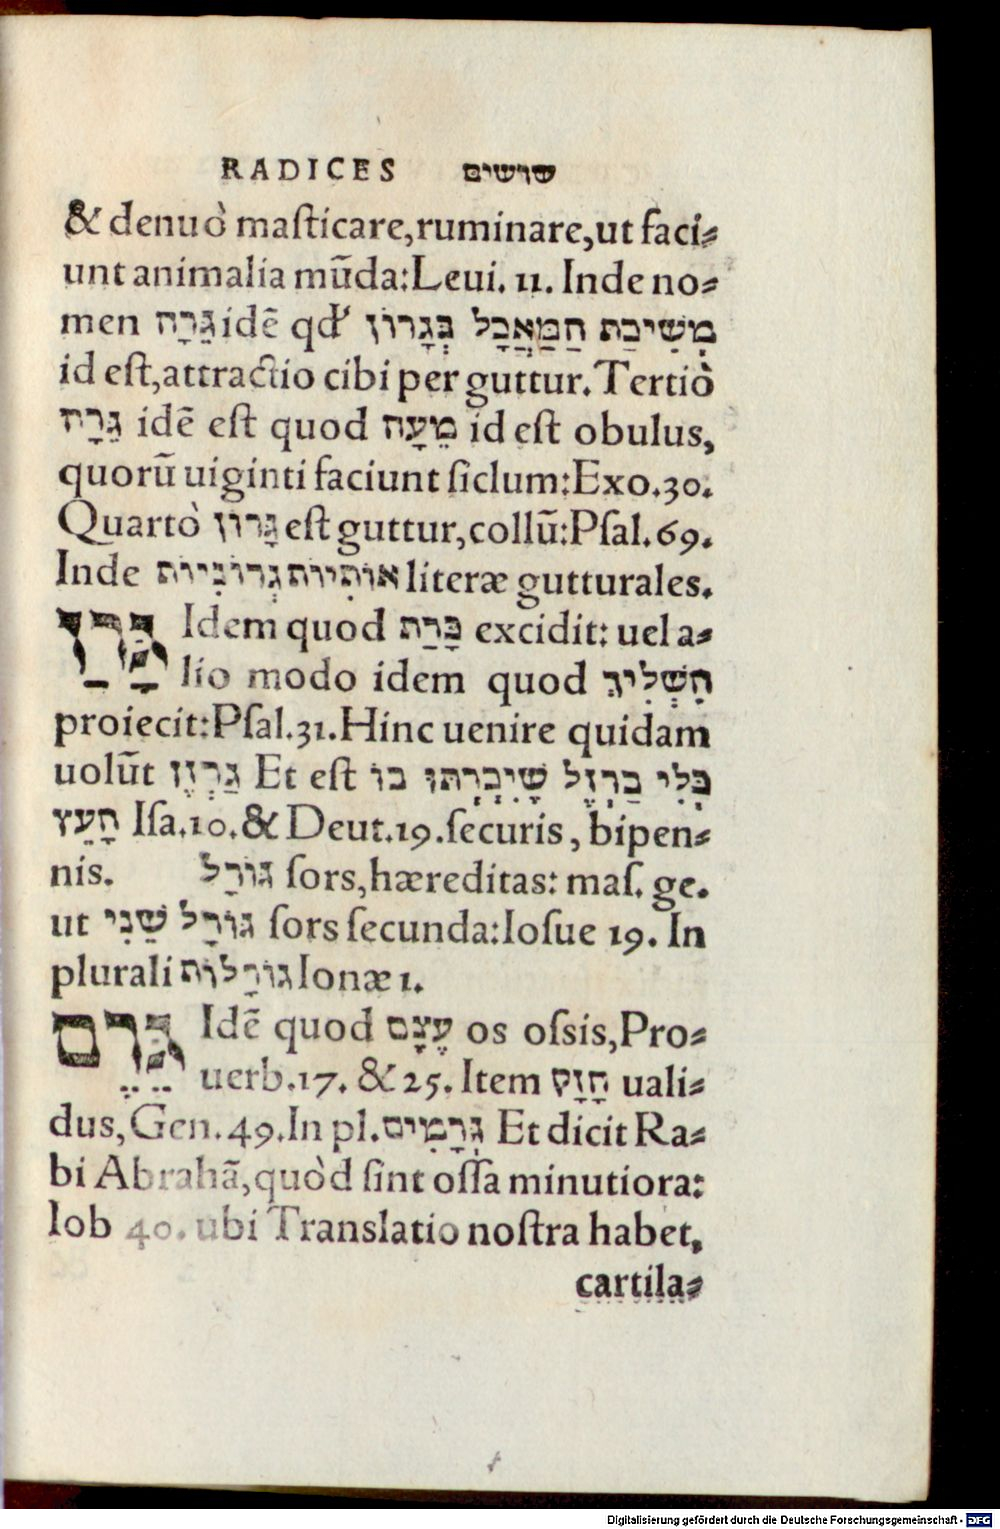 RADICES שרשים
& denuò maſticare, ruminare, ut faci⸗
unt animalia mūda: Leui. 11. Inde no⸗
men גֵּרָה idē qd' מְשִׁיבַת הַמַּאֲכָל בְּגָרוֹן
id eſt, attractio cibi per guttur. Tertiò
גֵּרָה idē eſt quod מֵעָה id eſt obulus,
quorū uiginti faciunt ſiclum: Exo. 30.
Quartò גָּרוֹן eſt guttur, collū: Pſal. 69.
Inde אוֹתִיּוֹת גְּרוֹנִיּוֹת literæ gutturales.
גָּרַז Idem quod כָּרַת excidit: uel a⸗
lio modo idem quod הִשְׁלִיךְ
proiecit: Pſal. 31. Hinc uenire quidam
uolūt גַּרְזֶן Et eſt כְּלִי בַרְזֶל שֶׁיִּכְרְתוּ בוֹ
הָעֵץ Iſa. 10. & Deut. 19. ſecuris, bipen⸗
nis. גּוֹרָל ſors, hæreditas: maſ. ge.
ut גּוֹרָל שֵׁנִי ſors ſecunda: Ioſue 19. In
plurali גּוֹרָלוֹת Ionæ 1.
גֶּרֶם Idē quod עֶצֶם os oſsis, Pro⸗
uerb. 17. & 25. Item חָזָק uali⸗
dus, Gen. 49. In pl. גְּרָמִים Et dicit Ra⸗
bi Abrahā, quòd ſint oſſa minutiora:
Iob 40. ubi Translatio noſtra habet,
cartila⸗
Digitalisierung gefördert durch die Deutsche Forschungsgemeinschaft - DFG